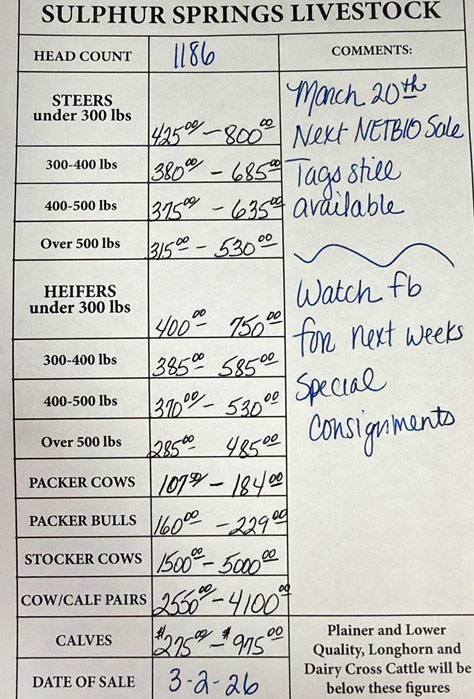 SULPHUR SPRINGS LIVESTOCK
HEAD COUNT 1186 COMMENTS:
STEERS
under 300 lbs 425.00 - 800.00
300-400 lbs 380.00 - 685.00
400-500 lbs 375.00 - 635.00
Over 500 lbs 315.00 - 530.00
HEIFERS
under 300 lbs 400.00 - 750.00
300-400 lbs 385.00 585.00
400-500 lbs 370.00 - 530.00
Over 500 lbs 285.00 485.00
PACKER COWS 107.50 - 184.00
PACKER BULLS 160.00 - 229.00
STOCKER COWS 1500.00 - 5000.00
COW/CALF PAIRS 2550.00 - 4100.00
CALVES $275.00 - $975.00
DATE OF SALE 3-2-26
March 20th
Next NETBIO Sale
Tags still
available
Watch fb
for next weeks
Special
Consignments
Plainer and Lower
Quality, Longhorn and
Dairy Cross Cattle will be
below these figures